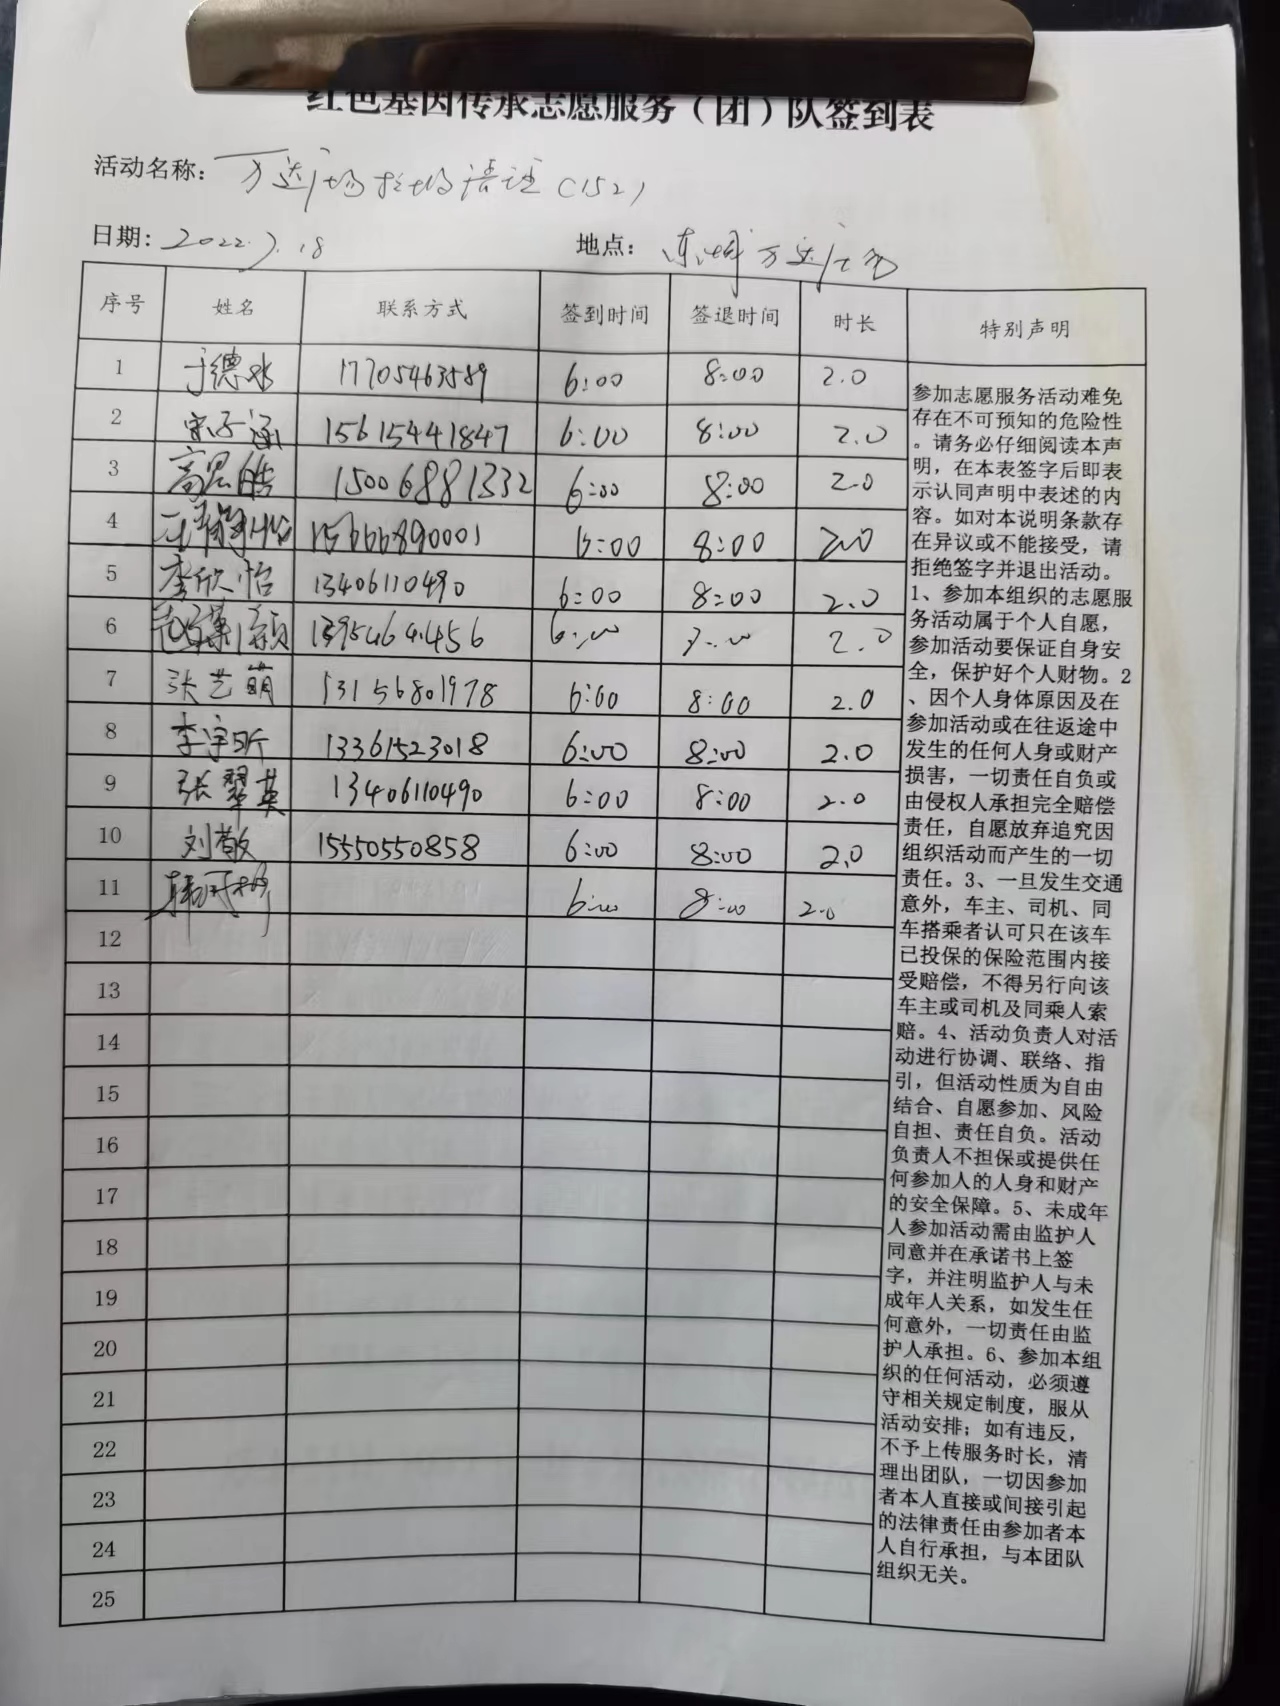 红色基因传承志愿服务（团）队签到表
活动名称： 万达广场 清理（152）
日期：2022.7.18 地点： 东城万达广场
序号 姓名 联系方式 签到时间 签退时间 时长 特别声明
1 于德水 17705463589 6:00 8:00 2.0
2 宋子涵 15615441847 6:00 8:00 2.0
3 高思皓 15006881332 6:00 8:00 2.0
4 15666890001 6:00 8:00 2.0
5 李欣怡 13406110490 6:00 8:00 2.0
6 6:00 2.0
7 张艺萌 13156801978 6:00 8:00 2.0
8 李宇昕 13361523018 6:00 8:00 2.0
9 张翠英 13406110490 6:00 8:00 2.0
10 刘敬 15550550858 6:00 8:00 2.0
11 6:00 8:00 2.0
12
13
14
15
16
17
18
19
20
21
22
23
24
25
参加志愿服务活动难免
存在不可预知的危险性
。请务必仔细阅读本声
明，在本表签字后即表
示认同声明中表述的内
容。如对本说明条款存
在异议或不能接受，请
拒绝签字并退出活动。
1、参加本组织的志愿服
务活动属于个人自愿，
参加活动要保证自身安
全，保护好个人财物。2
、因个人身体原因及在
参加活动或在往返途中
发生的任何人身或财产
损害，一切责任自负或
由侵权人承担完全赔偿
责任，自愿放弃追究因
组织活动而产生的一切
责任。3、一旦发生交通
意外，车主、司机、同
车搭乘者认可只在该车
已投保的保险范围内接
受赔偿，不得另行向该
车主或司机及同乘人索
赔。4、活动负责人对活
动进行协调、联络、指
引，但活动性质为自由
结合、自愿参加、风险
自担、责任自负。活动
负责人不担保或提供任
何参加人的人身和财产
的安全保障。5、未成年
人参加活动需由监护人
同意并在承诺书上签
字，并注明监护人与未
成年人关系，如发生任
何意外，一切责任由监
护人承担。6、参加本组
织的任何活动，必须遵
守相关规定制度，服从
活动安排；如有违反，
不予上传服务时长，清
理出团队，一切因参加
者本人直接或间接引起
的法律责任由参加者本
人自行承担，与本团队
组织无关。